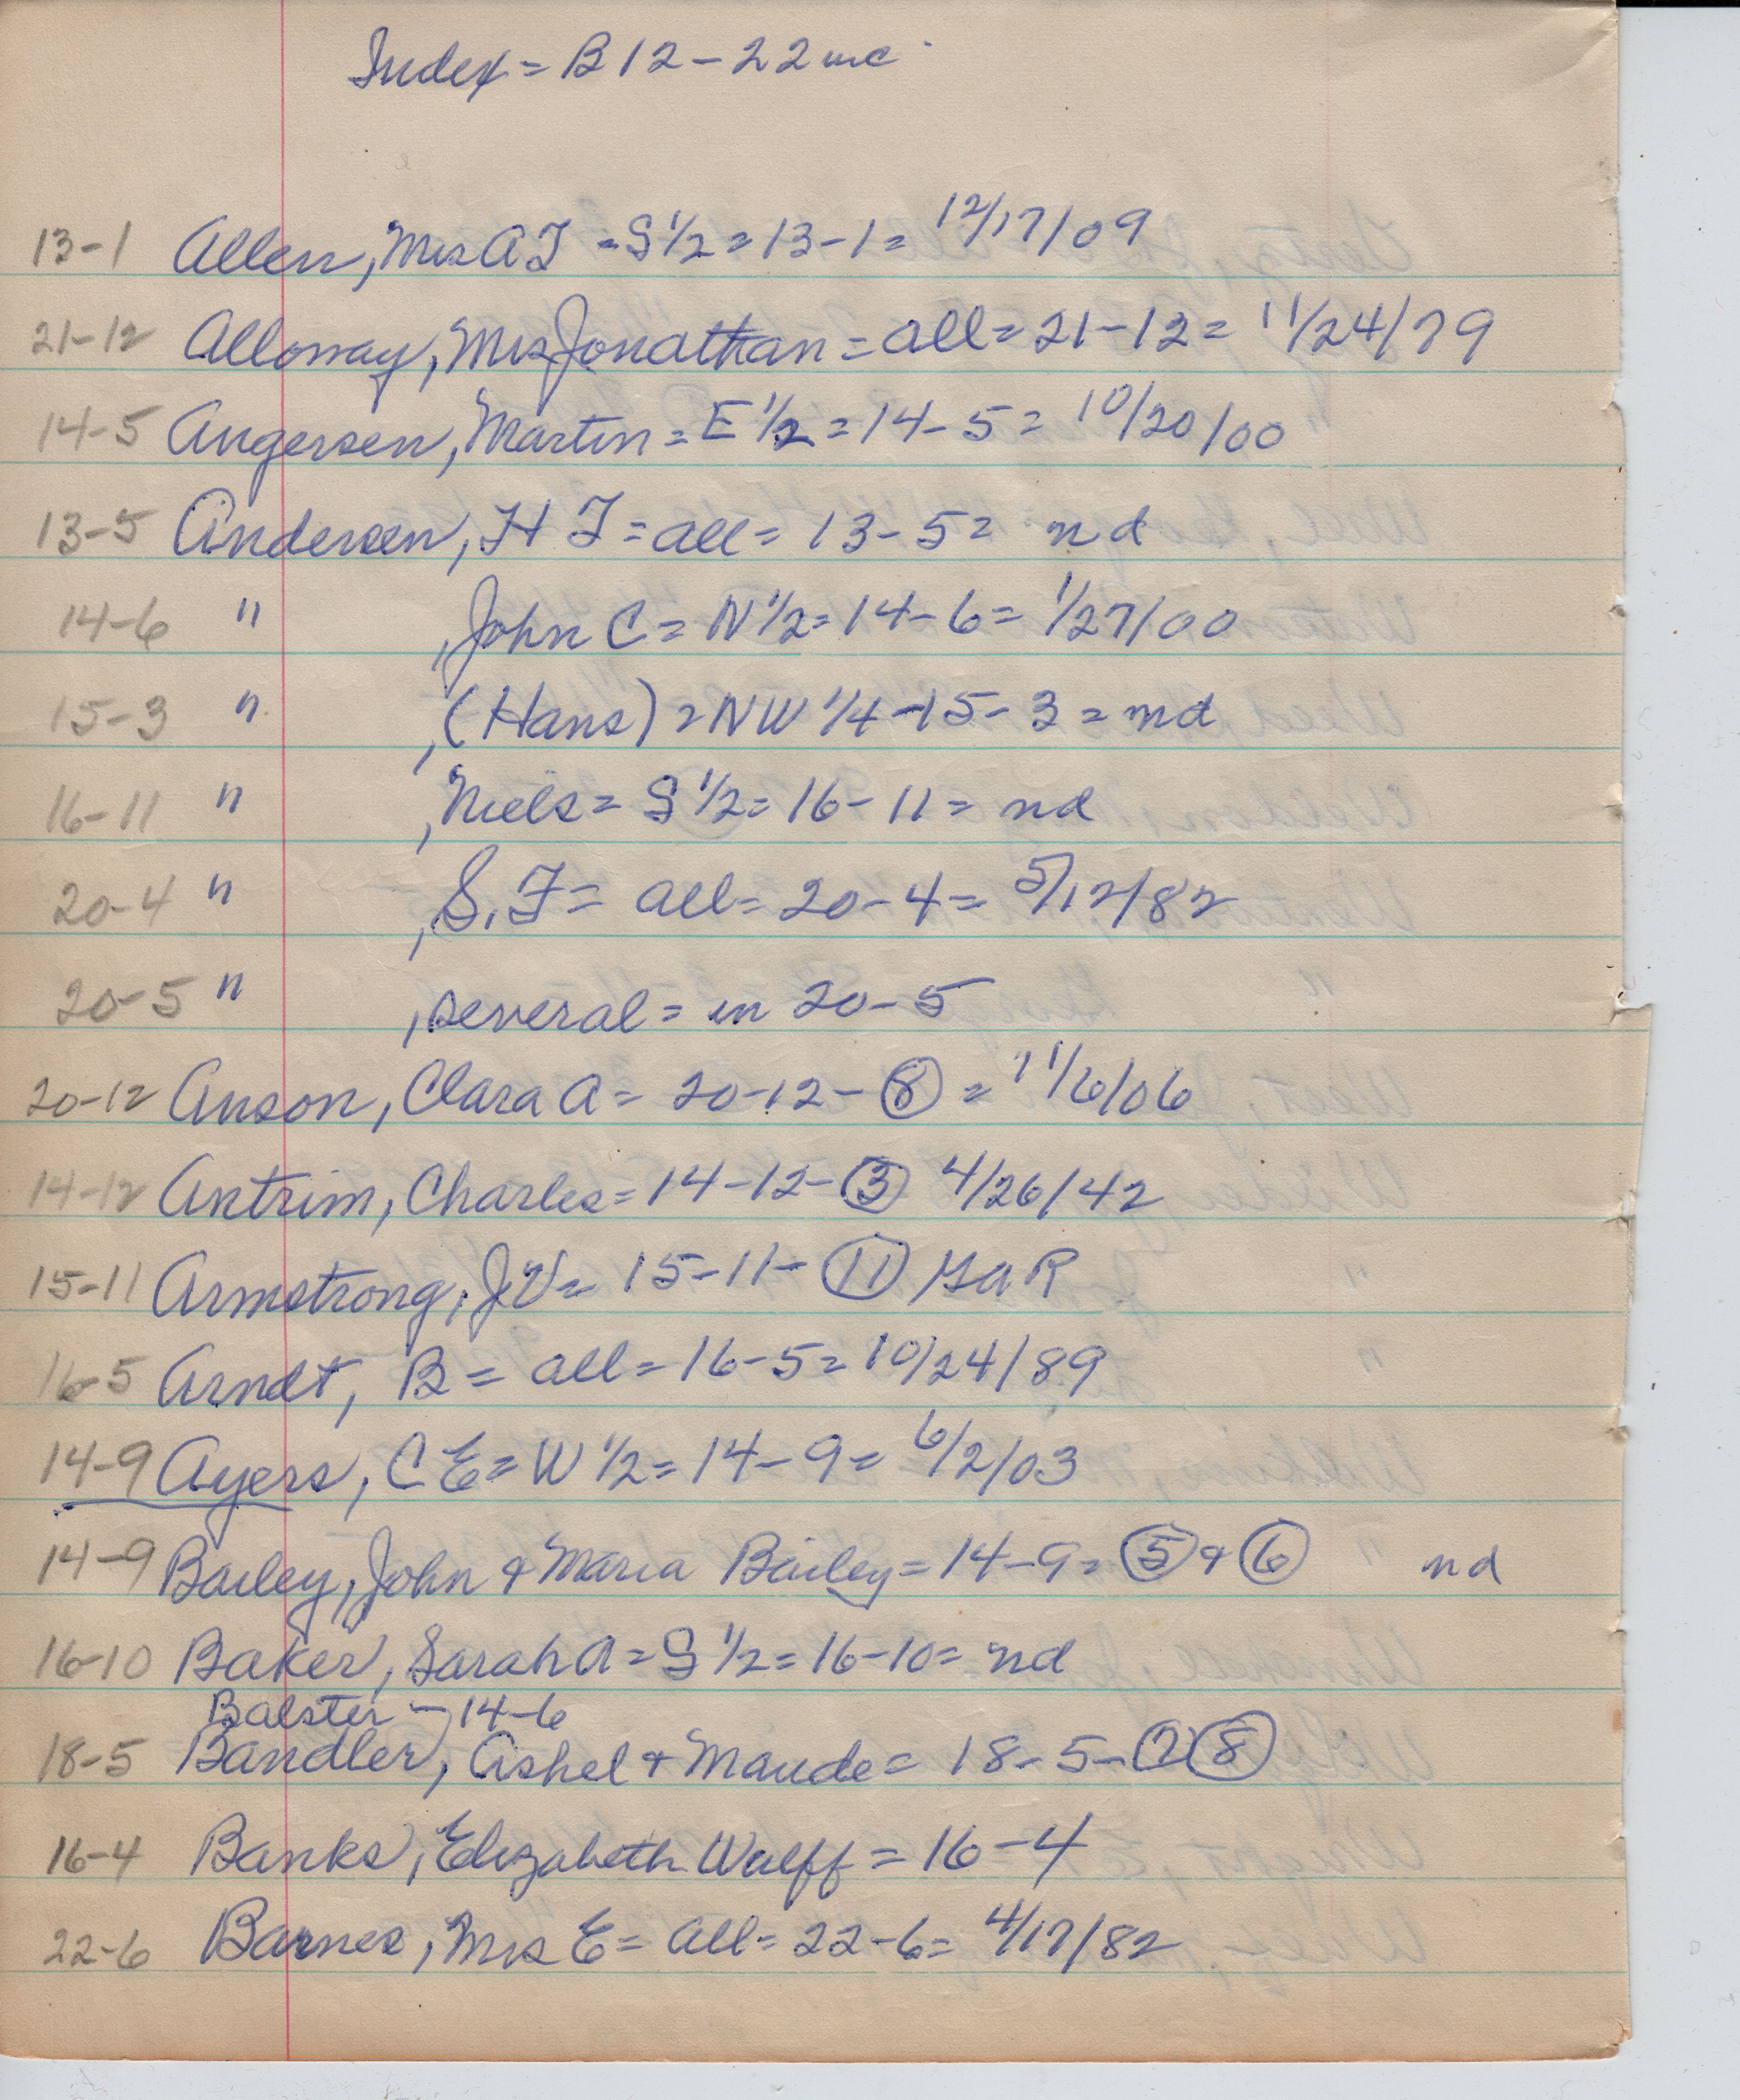 Index = B12-22 inc
13-1 Allen, Mrs A J = S 1/2 = 13-1 = 12/17/09
21-12 Alloway, Mrs Jonathan = all = 21-12 = 11/24/79
14-5 Angersen, Martin = E 1/2 = 14-5 = 10/20/00
13-5 Andersen, H J = all = 13-5 = nd
14-6 " , John C = N 1/2 = 14-6 = 1/27/00
15-3 " , (Hans) = NW 1/4 - 15-3 = nd
16-11 " , Niels = S 1/2 = 16-11 = nd
20-4 " , S. J = all = 20-4 = 5/12/82
20-5 " , several = in 20-5
20-12 Anson, Clara A = 20-12- 8 = 11/6/06
14-12 Antrim, Charles = 14-12- 3 4/26/42
15-11 Armstrong, J V = 15-11- 11 GAR
16-5 Arndt, B = all = 16-5 = 10/24/89
14-9 Ayers, C E = W 1/2 = 14-9 = 6/2/03
14-9 Bailey, John & Maria Bailey = 14-9 = 5 & 6 nd
16-10 Baker, Sarah A = S 1/2 = 16-10 = nd
Balster - 14-6
18-5 Bandler, Ashel & Maude = 18-5- 7 8
16-4 Banks, Elizabeth Wulff = 16-4
22-6 Barnes, Mrs E = all = 22-6 = 4/17/82